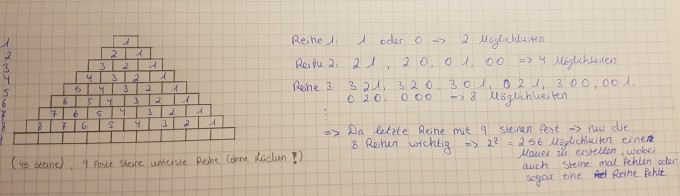 1 1
2 2 1
3 3 2 1
4 4 3 2 1
5 5 4 3 2 1
6 6 5 4 3 2 1
7 7 6 5 4 3 2 1
8 8 7 6 5 4 3 2 1
9
(45 Steine), 9 feste Steine unterste Reihe (ohne Lücken!)
Reihe 1: 1 oder 0 => 2 Möglichkeiten
Reihe 2: 21, 20, 01, 00 => 4 Möglichkeiten
Reihe 3: 321, 320, 301, 021, 300, 001,
020, 000 => 8 Möglichkeiten
⋮
=> Da letzte Reihe mit 9 steinen fest => nur die
8 Reihen wichtig => 2⁸ = 256 Möglichkeiten eine
Mauer zu erstellen, wobei
auch Steine mal fehlen oder
sogar eine Reihe fehlt